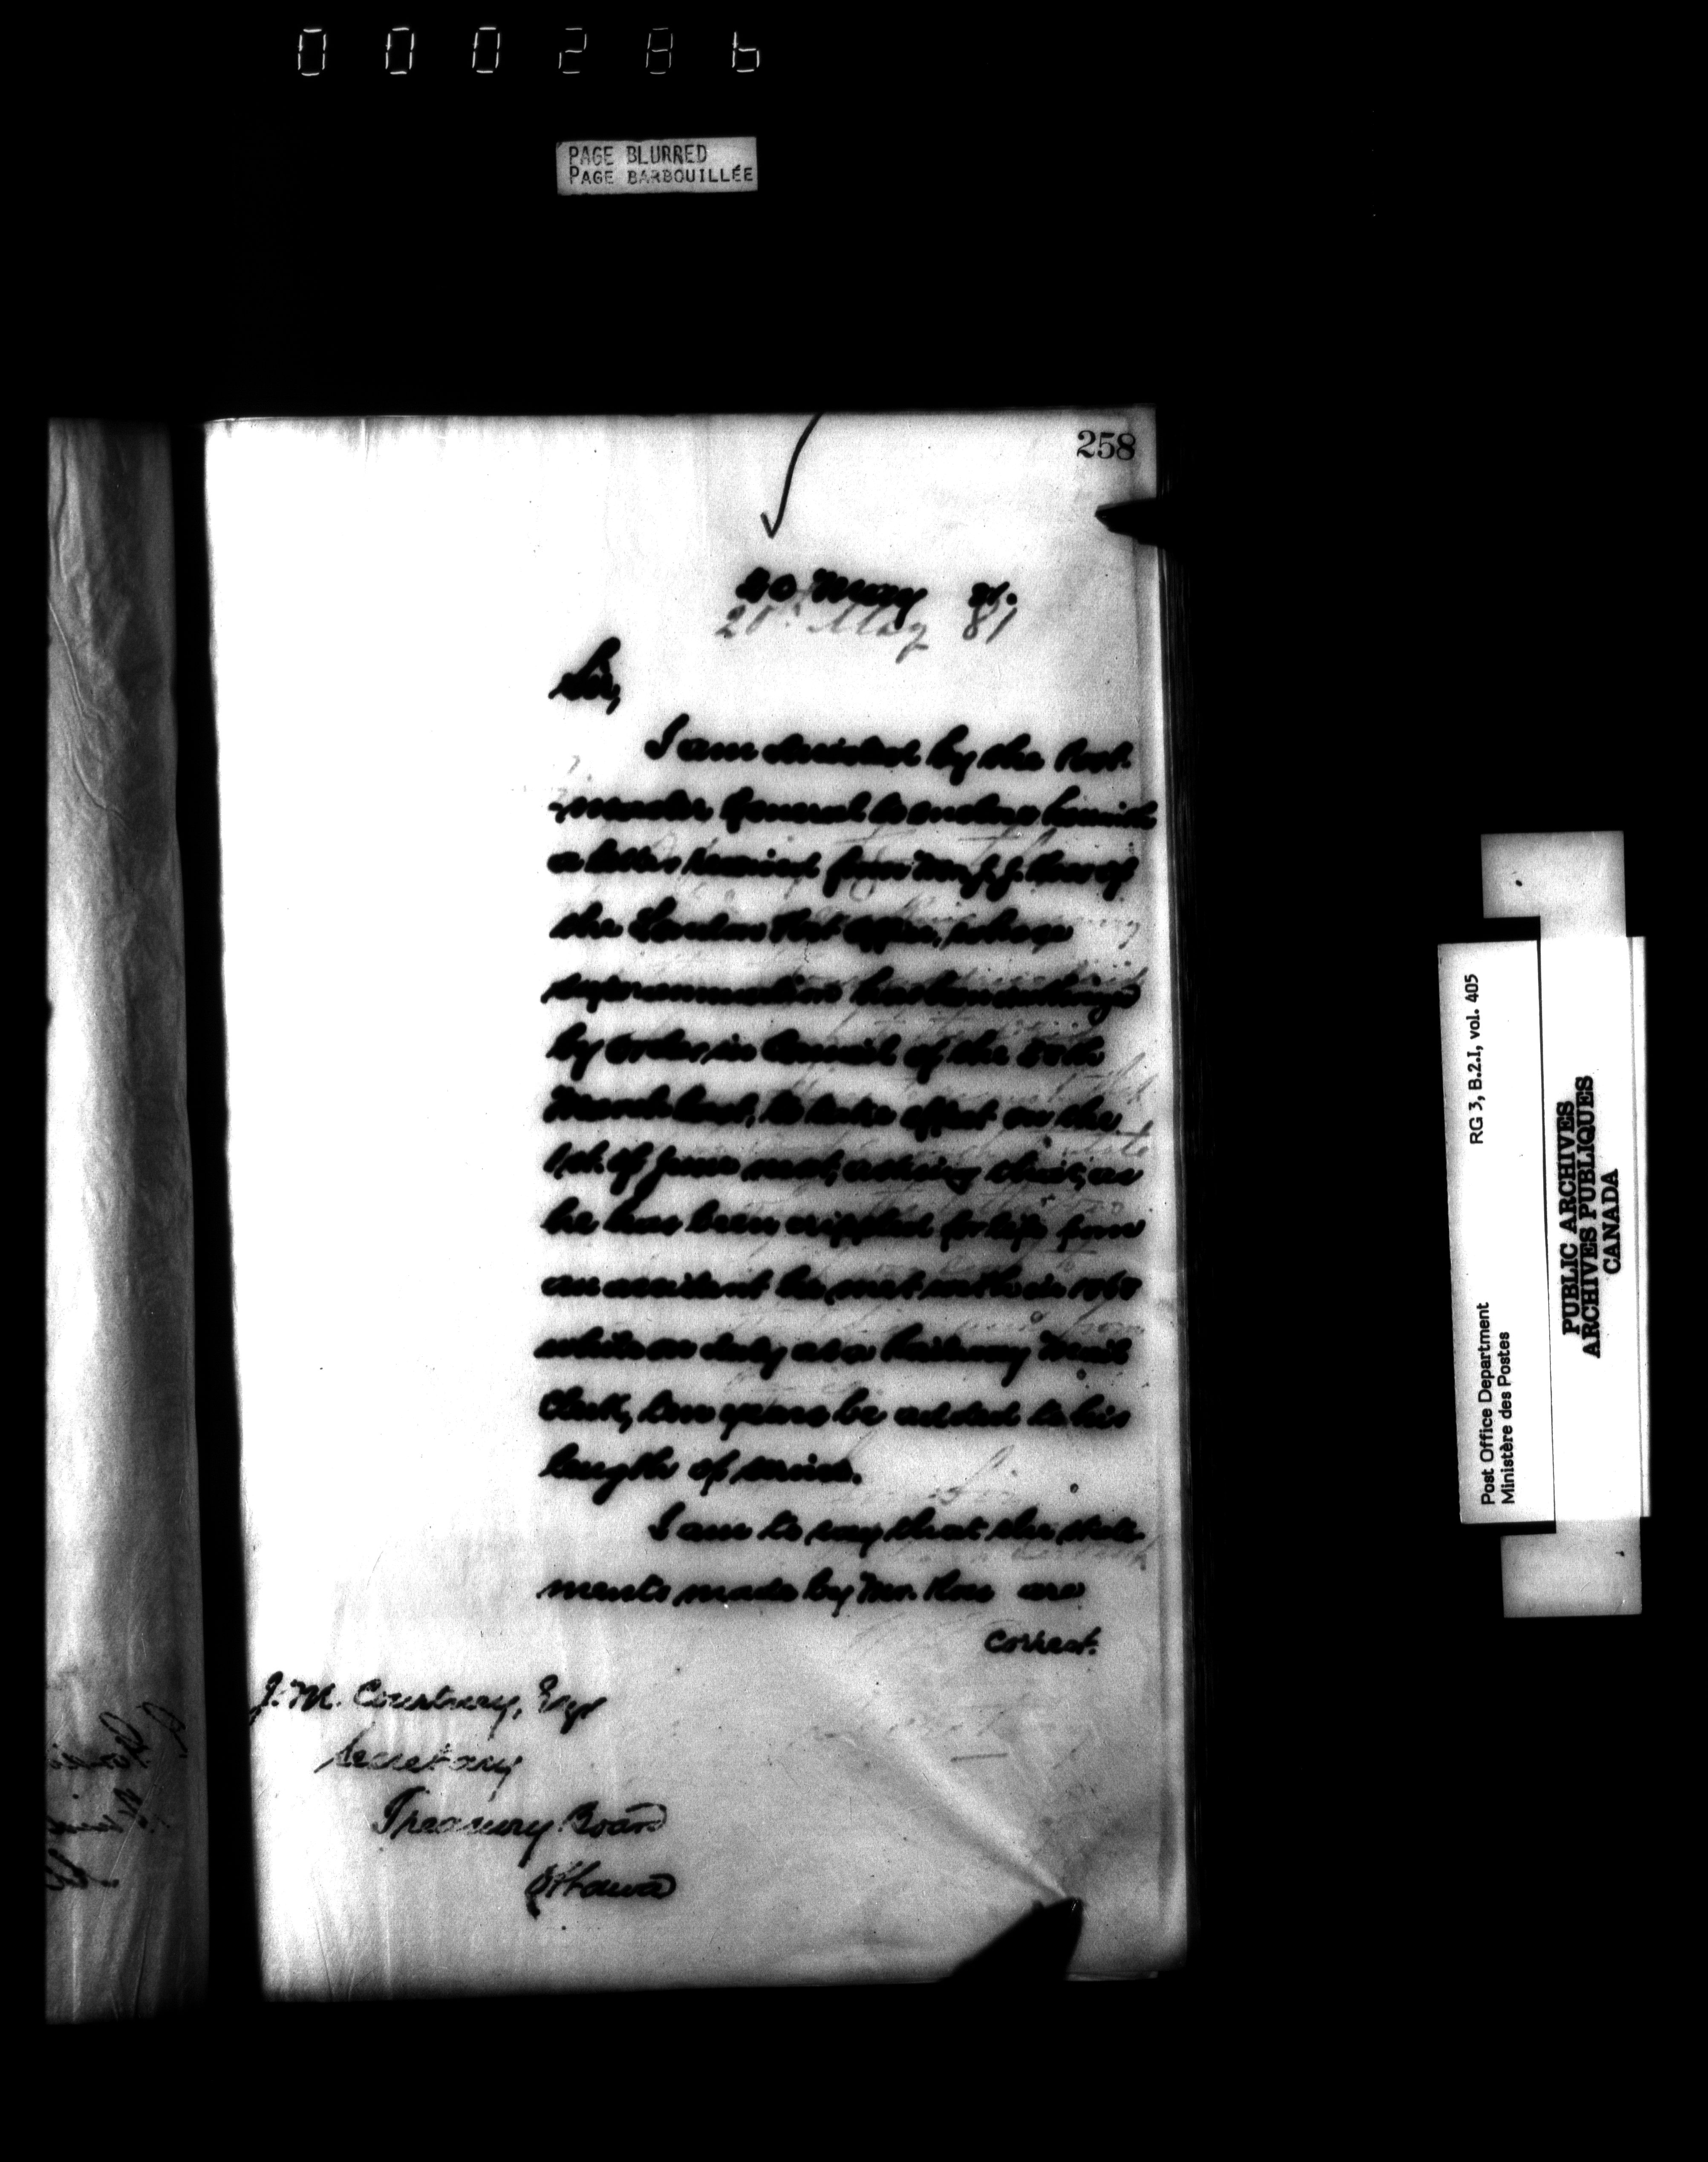 000286
PAGE BLURRED
PAGE BARBOUILLÉE
258
20 May 81.
20th May 81
Sir,
I am directed by the Post-
-master General to enclose herewith
a letter received from Mr J. J. Ross of
the London Post Office, whose
superannuation has been authorized
by Order in Council of the 30th
March last, to take effect on the
1st. of June next, asking that, as
he has been crippled for life from
an accident he met with in
while on duty as a Railway Mail
Clerk, ten years be added to his
length of service.
I am to say that the state
ments made by Mr. Ross are
correct.
J. M. Courtney, Esqr
Secretary
Treasury Board
Ottawa
Post Office Department
Ministère des Postes
RG 3, B.2.I, vol. 405
PUBLIC ARCHIVES
ARCHIVES PUBLIQUES
CANADA